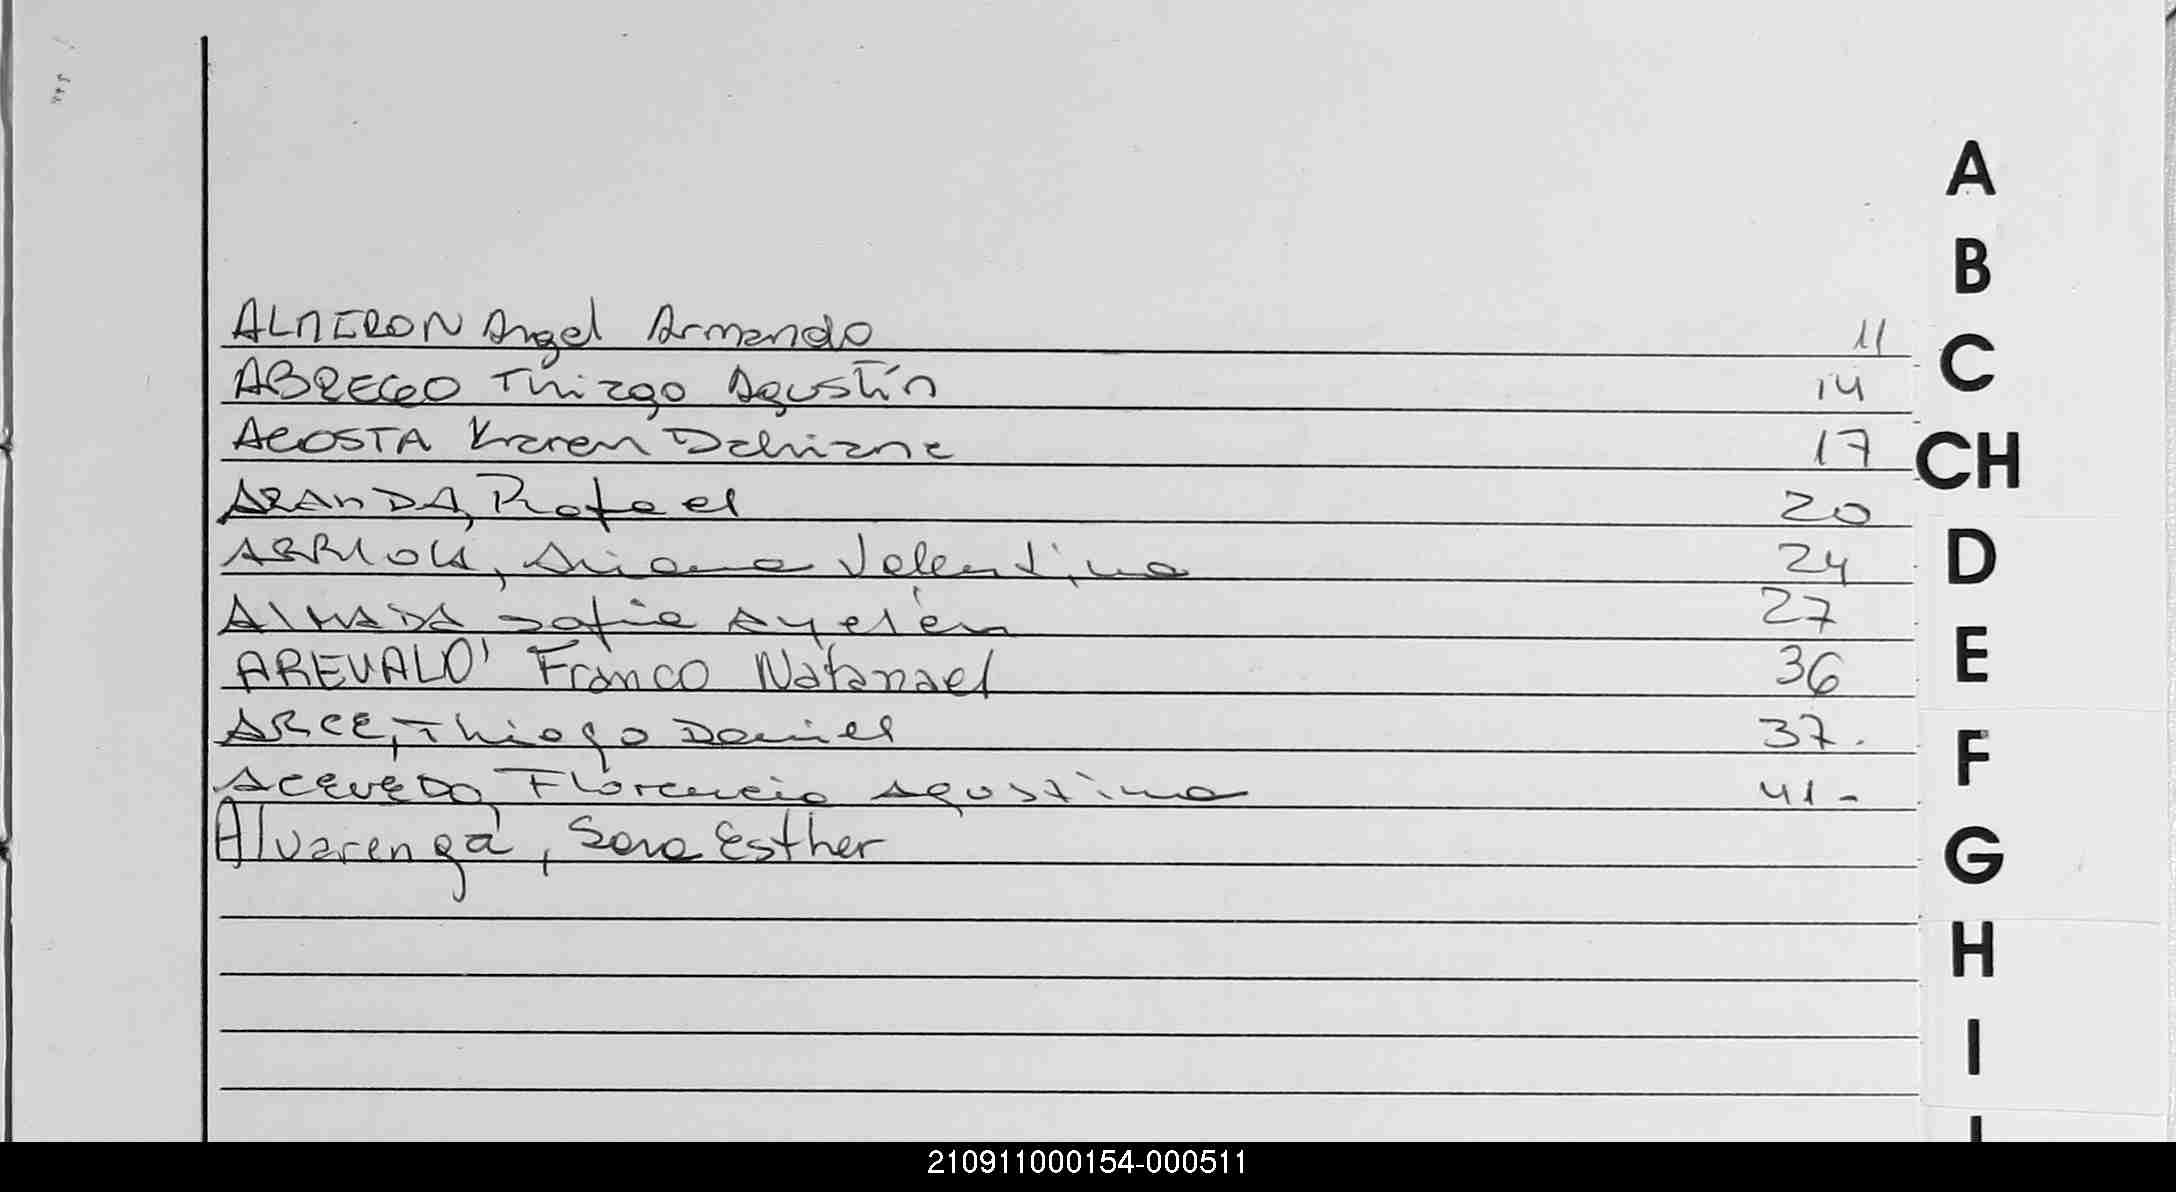 ALMIRON Angel Armando 11
ABREGO Thiago Agustín 14
ACOSTA Karen Dahiana 17
ARANDA, Rafael 20
ARRIOLA, Ariana Valentina 24
ALMADA Sofia Ayelén 27
AREVALO' Franco Natanael 36
ARCE, Thiago Daniel 37.
ACEVEDO, Florencia Agustina 41-
Alvarenga, Sara Esther
A
B
C
CH
D
E
F
G
H
I
210911000154-000511